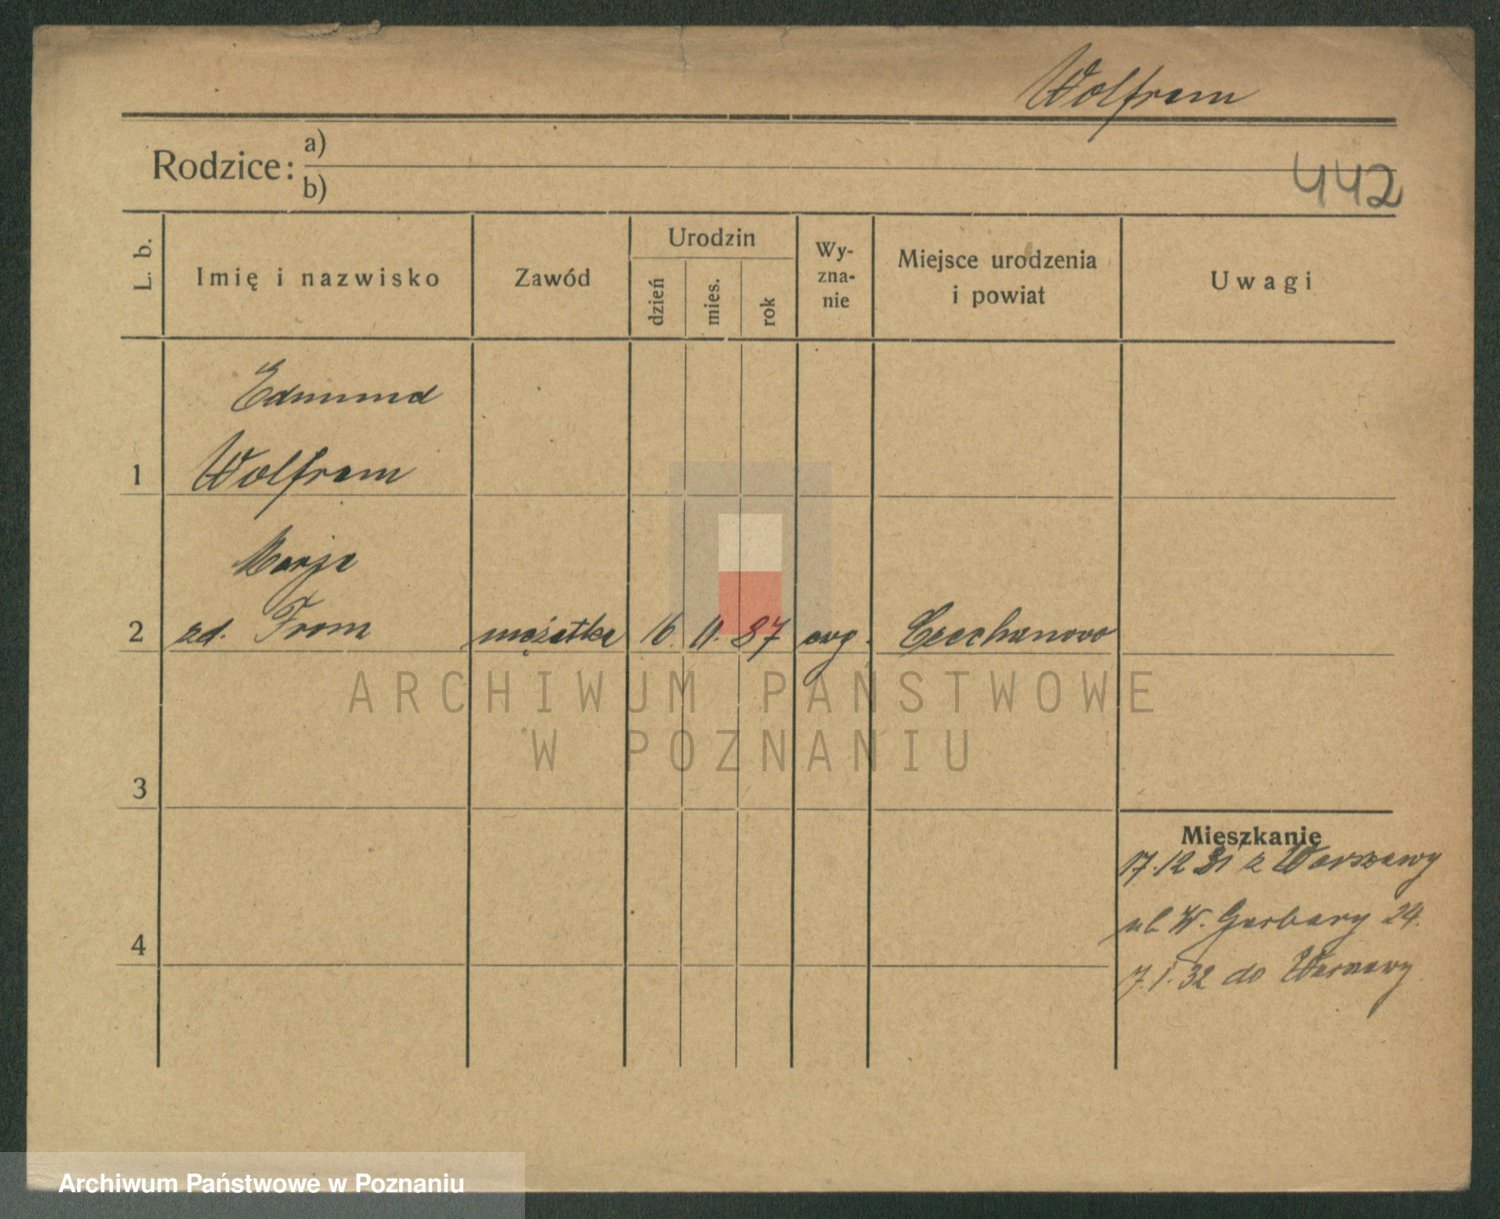 Wolfram
Rodzice: a)
b)
442
L. b.
Imię i nazwisko
Zawód
Urodzin
dzień
mies.
rok
Wy-
zna-
nie
Miejsce urodzenia
i powiat
Uwagi
Edmund
1 Wolfram
Marja
2 zd. From mężatka 16. 11. 87 ewg. Ciechanowo
ARCHIWUM PAŃSTWOWE
W POZNANIU
3
Mieszkanie
17.12 31 z Warszawy
ul. W. Garbary 24.
4
7.1.32 do Warszawy
Archiwum Państwowe w Poznaniu